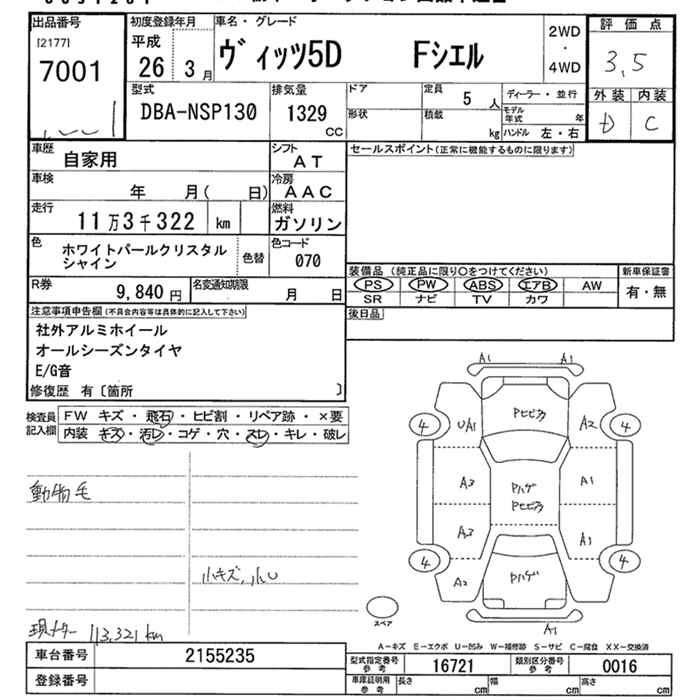 出品番号
[2177]
7001
初度登録年月
平成
26 3月
車名・グレード
ヴィッツ5D Fシエル
2WD
・
4WD
評価点
3,5
外装 内装
D C
型式
DBA-NSP130
排気量
1329
CC
ドア
形状
定員
5 人
積載
kg
ディーラー・並行
モデル年式 年
ハンドル 左・右
車歴
自家用
シフト
AT
車検
年 月( 日)
冷房
AAC
走行
11万3千322 km
燃料
ガソリン
色
ホワイトパールクリスタル
シャイン
色替
色コード
070
R券
9,840 円
名変通知期限
月 日
セールスポイント(正常に機能するものに限ります)
装備品(純正品に限り○をつけてください)
PS PW ABS エアB AW
SR ナビ TV カワ
新車保証書
有・無
後日品
注意事項申告欄(不具合内容等は具体的に記入して下さい)
社外アルミホイール
オールシーズンタイヤ
E/G音
修復歴 有〔箇所 〕
検査員
記入欄
FW キズ・飛石・ヒビ割・リペア跡・×要
内装 キズ・汚レ・コゲ・穴・スレ・キレ・破レ
動物毛
小キズ,小U
現メーター 113,321km
A1 A1
4 UA1 Pヒビ乃 A2 4
A3 Pハゲ Pヒビ乃 A1
A3 A1
4 A2 Pハゲ 4
A1
スペア
A-キズ E-エクボ U-凹み W-補修跡 S-サビ C-腐食 XX-交換済
車台番号 2155235
登録番号
型式指定番号
参考
16721
類別区分番号
参考
0016
車庫証明用
参考
長さ cm 幅 cm 高さ cm